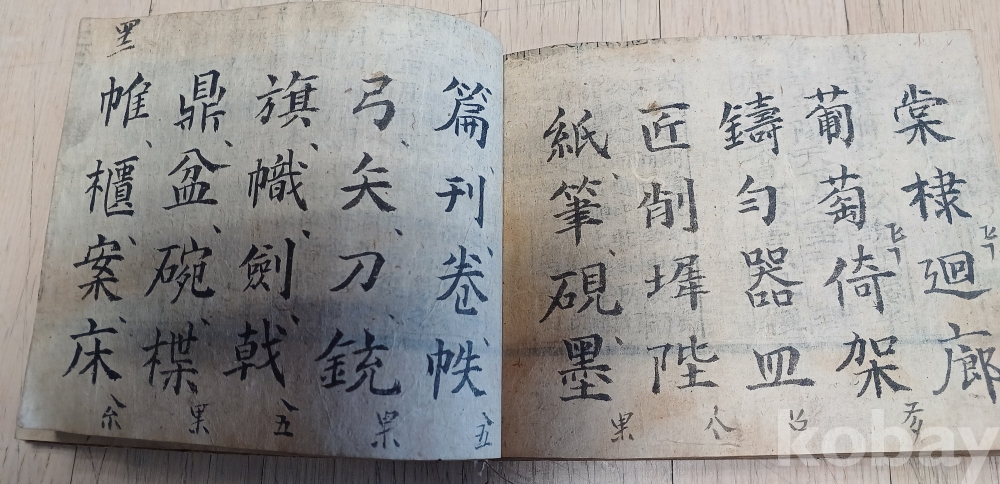 棠棣廻廊
葡萄倚架
鑄匀器皿
匠削墀陛
紙筆硯墨
果
八
篇刊卷帙
五
弓矢刀銃
果
旗幟劍戟
五
鼎盆碗楪
果
帷櫃案床
kobay